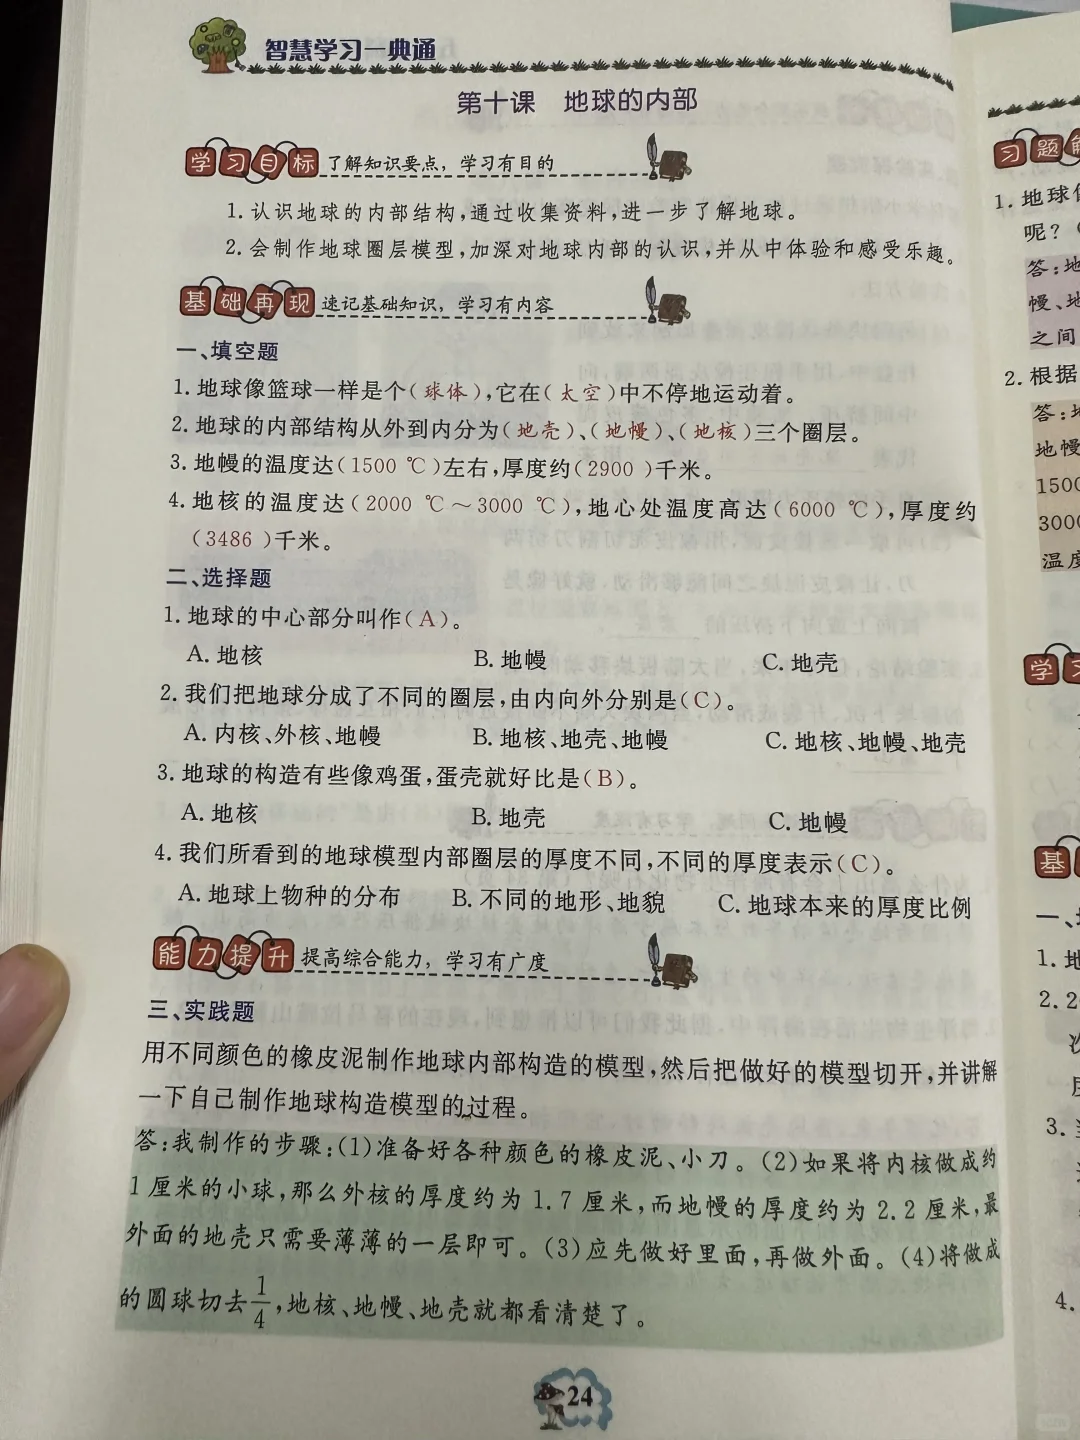 智慧学习一典通
第十课 地球的内部
学习目标 了解知识要点，学习有目的
1.认识地球的内部结构,通过收集资料,进一步了解地球。
2.会制作地球圈层模型,加深对地球内部的认识,并从中体验和感受乐趣。
基础再现 速记基础知识，学习有内容
一、填空题
1.地球像篮球一样是个(球体),它在(太空)中不停地运动着。
2.地球的内部结构从外到内分为(地壳)、(地幔)、(地核)三个圈层。
3.地幔的温度达(1500 ℃)左右,厚度约(2900)千米。
4.地核的温度达(2000 ℃～3000 ℃),地心处温度高达(6000 ℃),厚度约
(3486)千米。
二、选择题
1.地球的中心部分叫作(A)。
A.地核 B.地幔 C.地壳
2.我们把地球分成了不同的圈层,由内向外分别是(C)。
A.内核、外核、地幔 B.地核、地壳、地幔 C.地核、地幔、地壳
3.地球的构造有些像鸡蛋,蛋壳就好比是(B)。
A.地核 B.地壳 C.地幔
4.我们所看到的地球模型内部圈层的厚度不同,不同的厚度表示(C)。
A.地球上物种的分布 B.不同的地形、地貌 C.地球本来的厚度比例
能力提升 提高综合能力，学习有广度
三、实践题
用不同颜色的橡皮泥制作地球内部构造的模型,然后把做好的模型切开,并讲解
一下自己制作地球构造模型的过程。
答:我制作的步骤:(1)准备好各种颜色的橡皮泥、小刀。(2)如果将内核做成约
1厘米的小球,那么外核的厚度约为1.7厘米,而地幔的厚度约为2.2厘米,最
外面的地壳只需要薄薄的一层即可。(3)应先做好里面,再做外面。(4)将做成
的圆球切去1/4,地核、地幔、地壳就都看清楚了。
24
习题
1.地球
呢?
答:地
幔、地
之间
2.根据
答:地
地幔
1500
3000
温度
学
基
一、
1.地
2.2
3.
4.